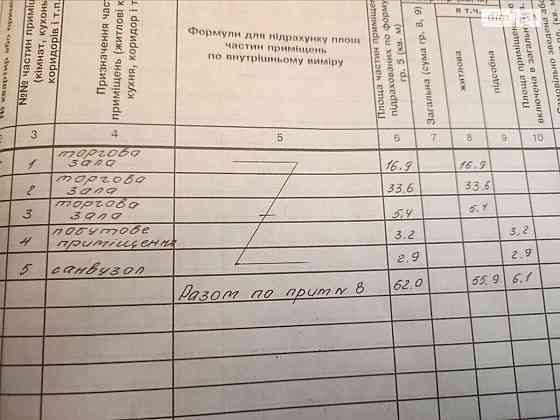 №№ частин приміщ
(кімнат, кухонь
коридорів і т.п.
Призначення част
приміщень (житлові к
кухня, коридор і т
Формули для підрахунку площ
частин приміщень
по внутрішньому виміру
Площа частин приміщен
підрахованих по форму
гр. 5 (кв. м)
Загальна (сума гр. 8, 9)
в т.ч.
житлова
підсобна
Площа приміщень
включена в загальн
3 4 5 6 7 8 9 10
1 торгова зала 16.9 16.9
2 торгова зала 33,6 33,6
3 торгова зала 5,4 5,4
4 побутове приміщення 3,2 3,2
5 санвузол 2.9 2.9
Разом по прит N 8 62.0 55.9 6.1